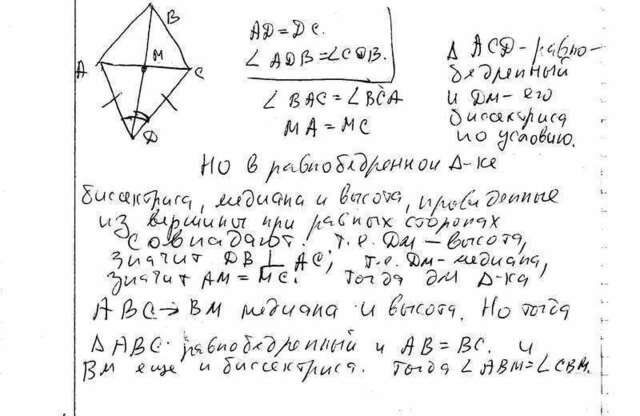 B
A
M
C
D
AD = DC.
∠ ADB = ∠CDB.
∠ BAC = ∠BCA
MA = MC
Δ ACD - равно-
бедренный
и DM - его
биссектриса
по условию.
Но в равнобедренном Δ-ке
биссектриса, медиана и высота, проведенные
из вершины при равных сторонах
совпадают. т.е. DM - высота,
значит DB ⊥ AC; т.е. DM - медиана,
значит AM = MC. Тогда для Δ-ка
ABC → BM медиана и высота. Но тогда
Δ ABC равнобедренный и AB = BC. и
BM еще и биссектриса. Тогда ∠ ABM = ∠ CBM.